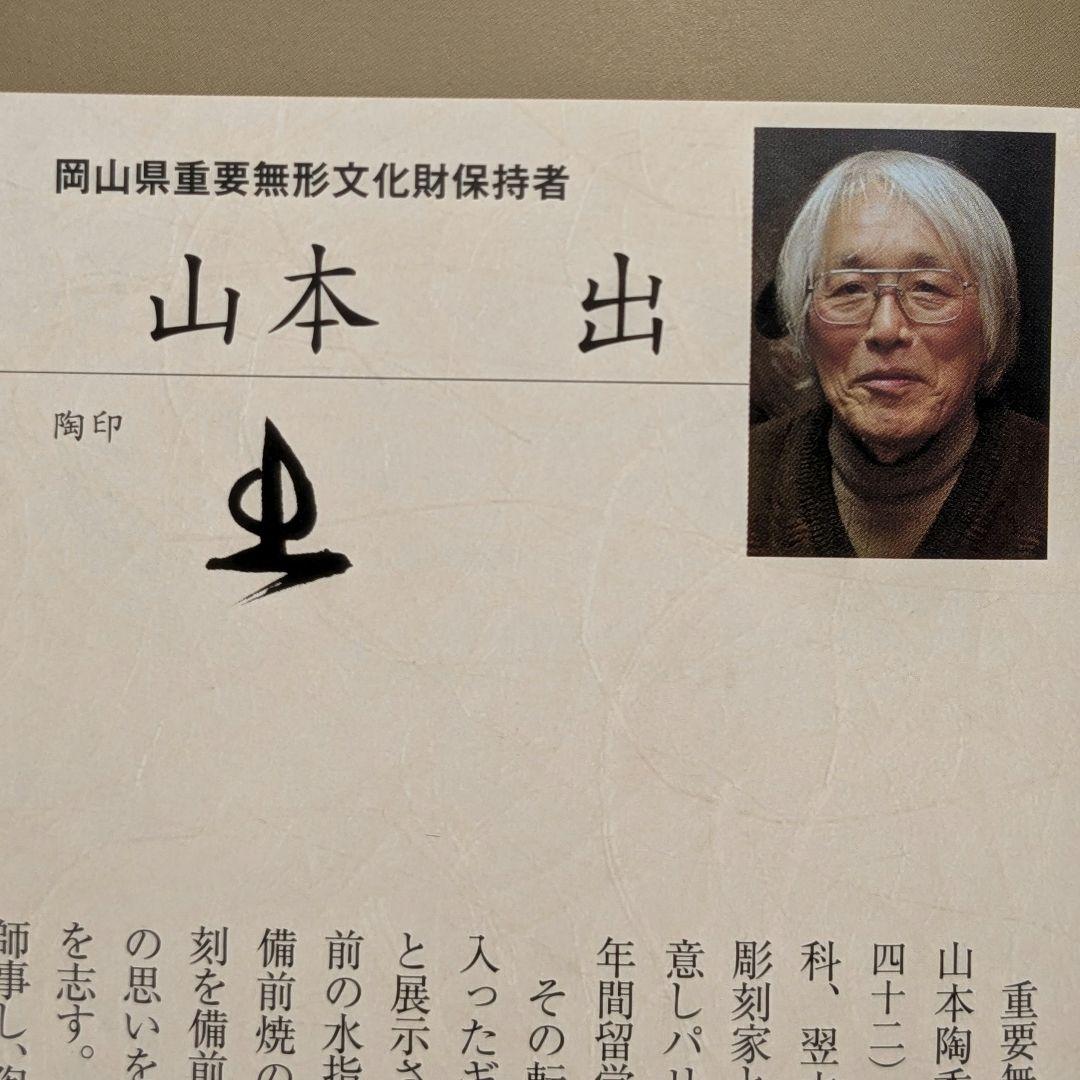 岡山県重要無形文化財保持者
山本 出
陶印
重要無
山本陶秀
四十二）
科、翌
彫刻家と
意しパリ
年間留学
その転
入ったギ
と展示さ
前の水指
備前焼の
刻を備前
の思いを
を志す。
師事し、陶